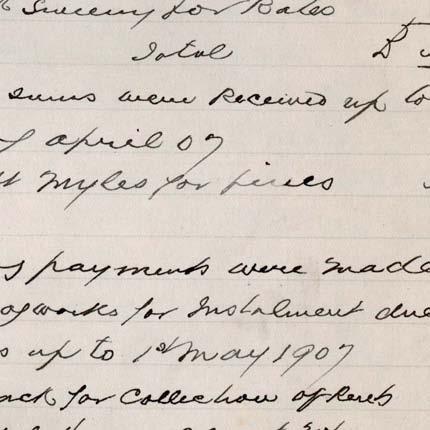 Sweeny for Rates
Total Dr
sums were Received up to
april 07
Myles for fines
payments were made
for Instalment due
up to 1st May 1907
for Collection of Rents